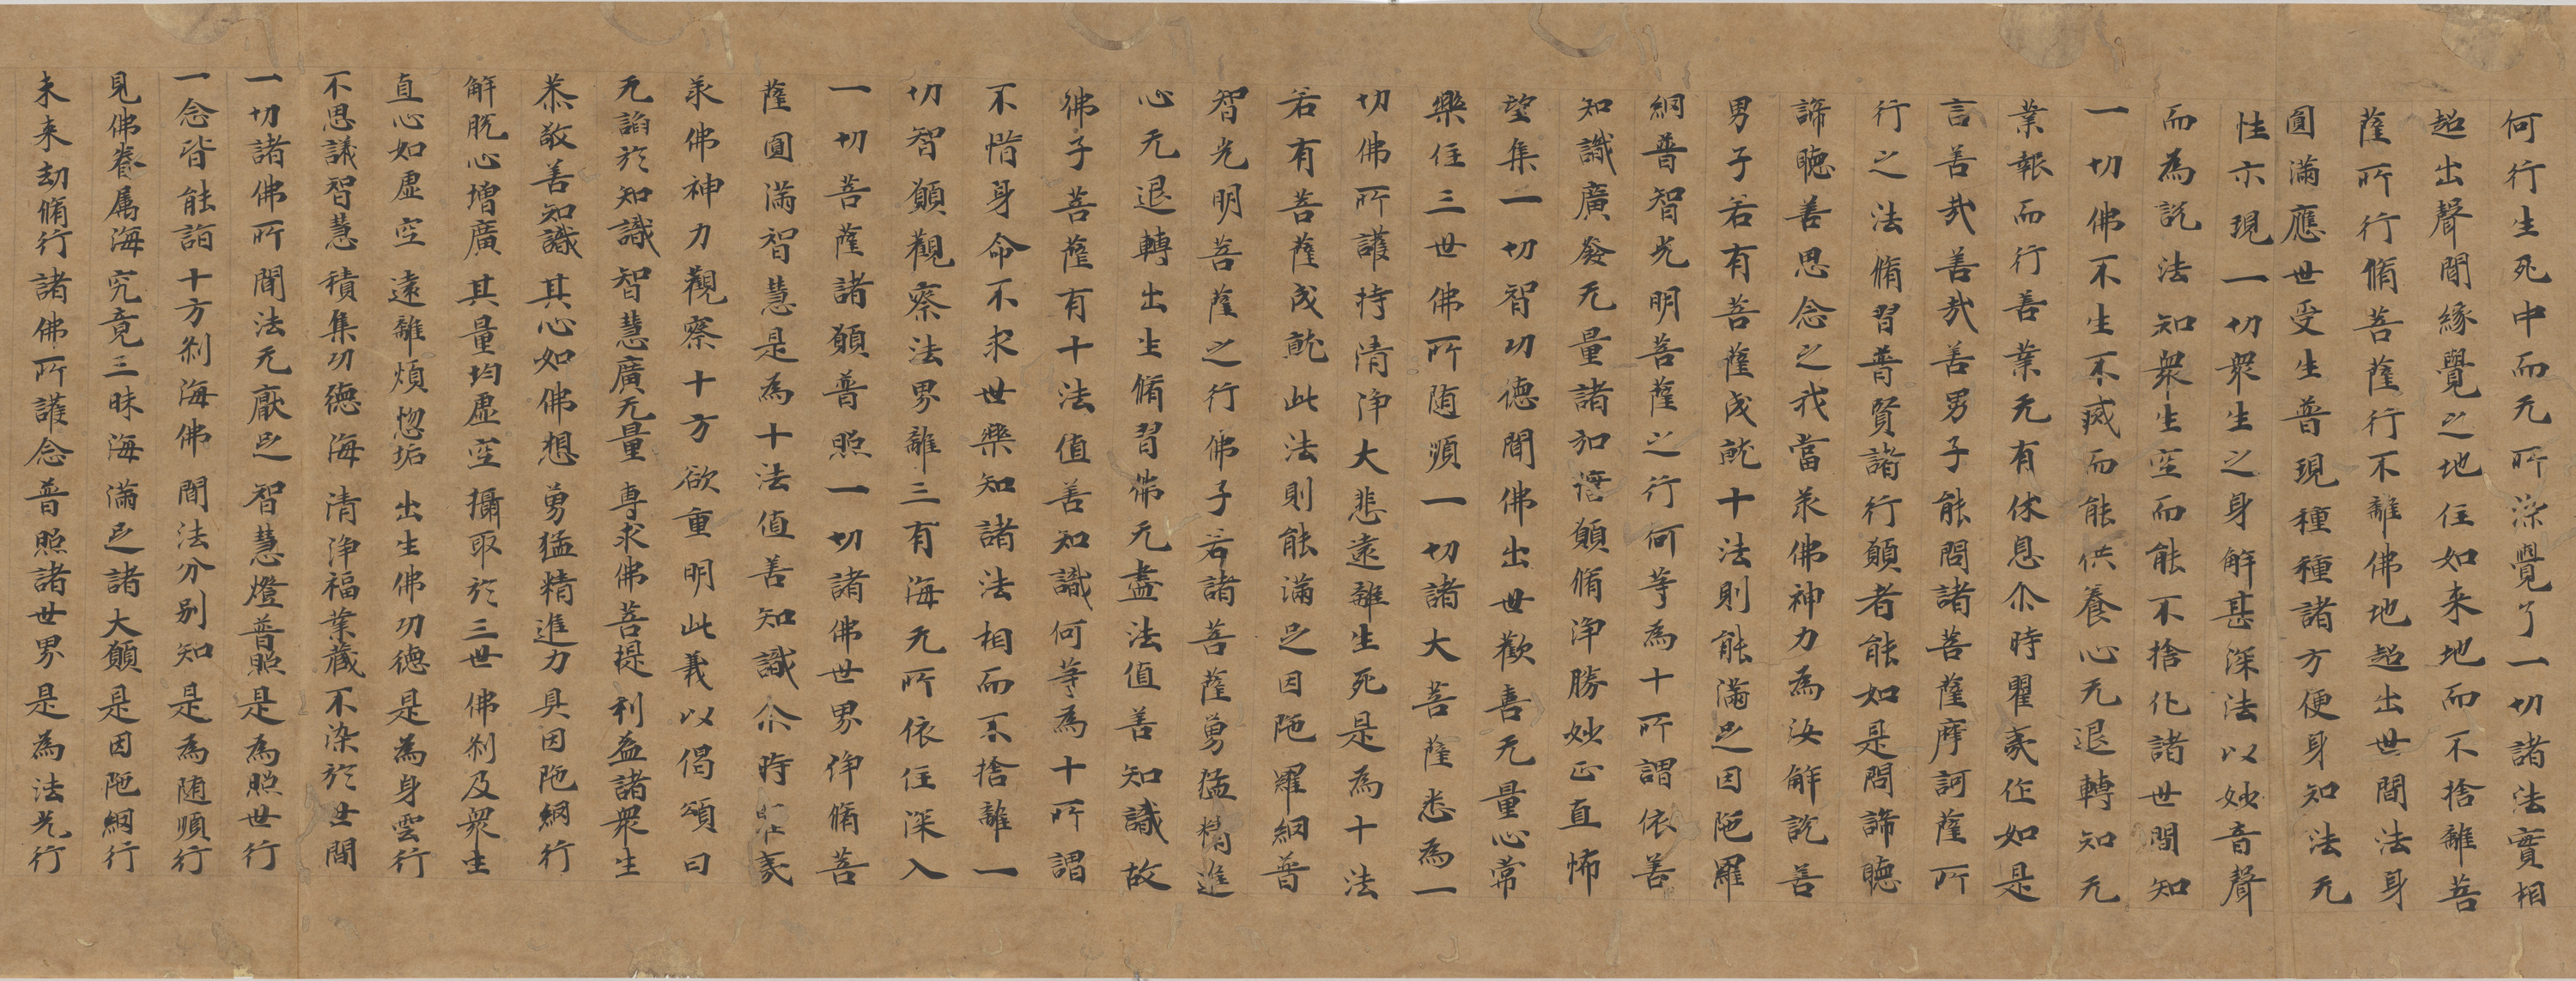 何行生死中而无所染覺了一切諸法實相
超出聲聞緣覺之地住如来地而不捨離菩
薩所行脩菩薩行不離佛地超出世間法身
圓滿應世受生普現種種諸方便身知法无
性亦現一切衆生之身解甚深法以妙音聲
而為説法知衆生空而能不捨化諸世間知
一切佛不生不滅而能供養心无退轉知无
業報而行善業无有休息尒時瞿夷作如是
言善哉善哉善男子能問諸菩薩摩訶薩所
行之法脩習普賢諸行願者能如是問諦聴
諦聴善思念之我當承佛神力為汝解説善
男子若有菩薩成就十法則能滿足因陁羅
網普智光明菩薩之行何等為十所謂依善
知識廣發无量諸加護願脩淨勝妙正直悕
望集一切智功德聞佛出世歡喜无量心常
樂住三世佛所随順一切諸大菩薩悉為一
切佛所護持清淨大悲遠離生死是為十法
若有菩薩成就此法則能滿足因陁羅網普
智光明菩薩之行佛子若諸菩薩勇猛精進
心无退轉出生脩習佛无盡法值善知識故
佛子菩薩有十法值善知識何等為十所謂
不惜身命不求世樂知諸法相而不捨離一
切智願觀察法界離三有海无所依住深入
一切菩薩諸願普照一切諸佛世界淨脩菩
薩圓滿智慧是為十法值善知識尒時瞿夷
承佛神力觀察十方欲重明此義以偈頌曰
无諂於知識 智慧廣无量 專求佛菩提 利益諸衆生
恭敬善知識 其心如佛想 勇猛精進力 具因陁網行
解脱心增廣 其量均虛空 攝取於三世 佛刹及衆生
直心如虛空 遠離煩惚垢 出生佛功德 是為身雲行
不思議智慧 積集功德海 清淨福業藏 不染於世間
一切諸佛所 聞法无厭足 智慧燈普照 是為照世行
一念皆能詣 十方刹海佛 聞法分别知 是為随順行
見佛眷属海 究竟三昧海 滿足諸大願 是因陁網行
未来劫脩行 諸佛所護念 普照諸世界 是為法光行